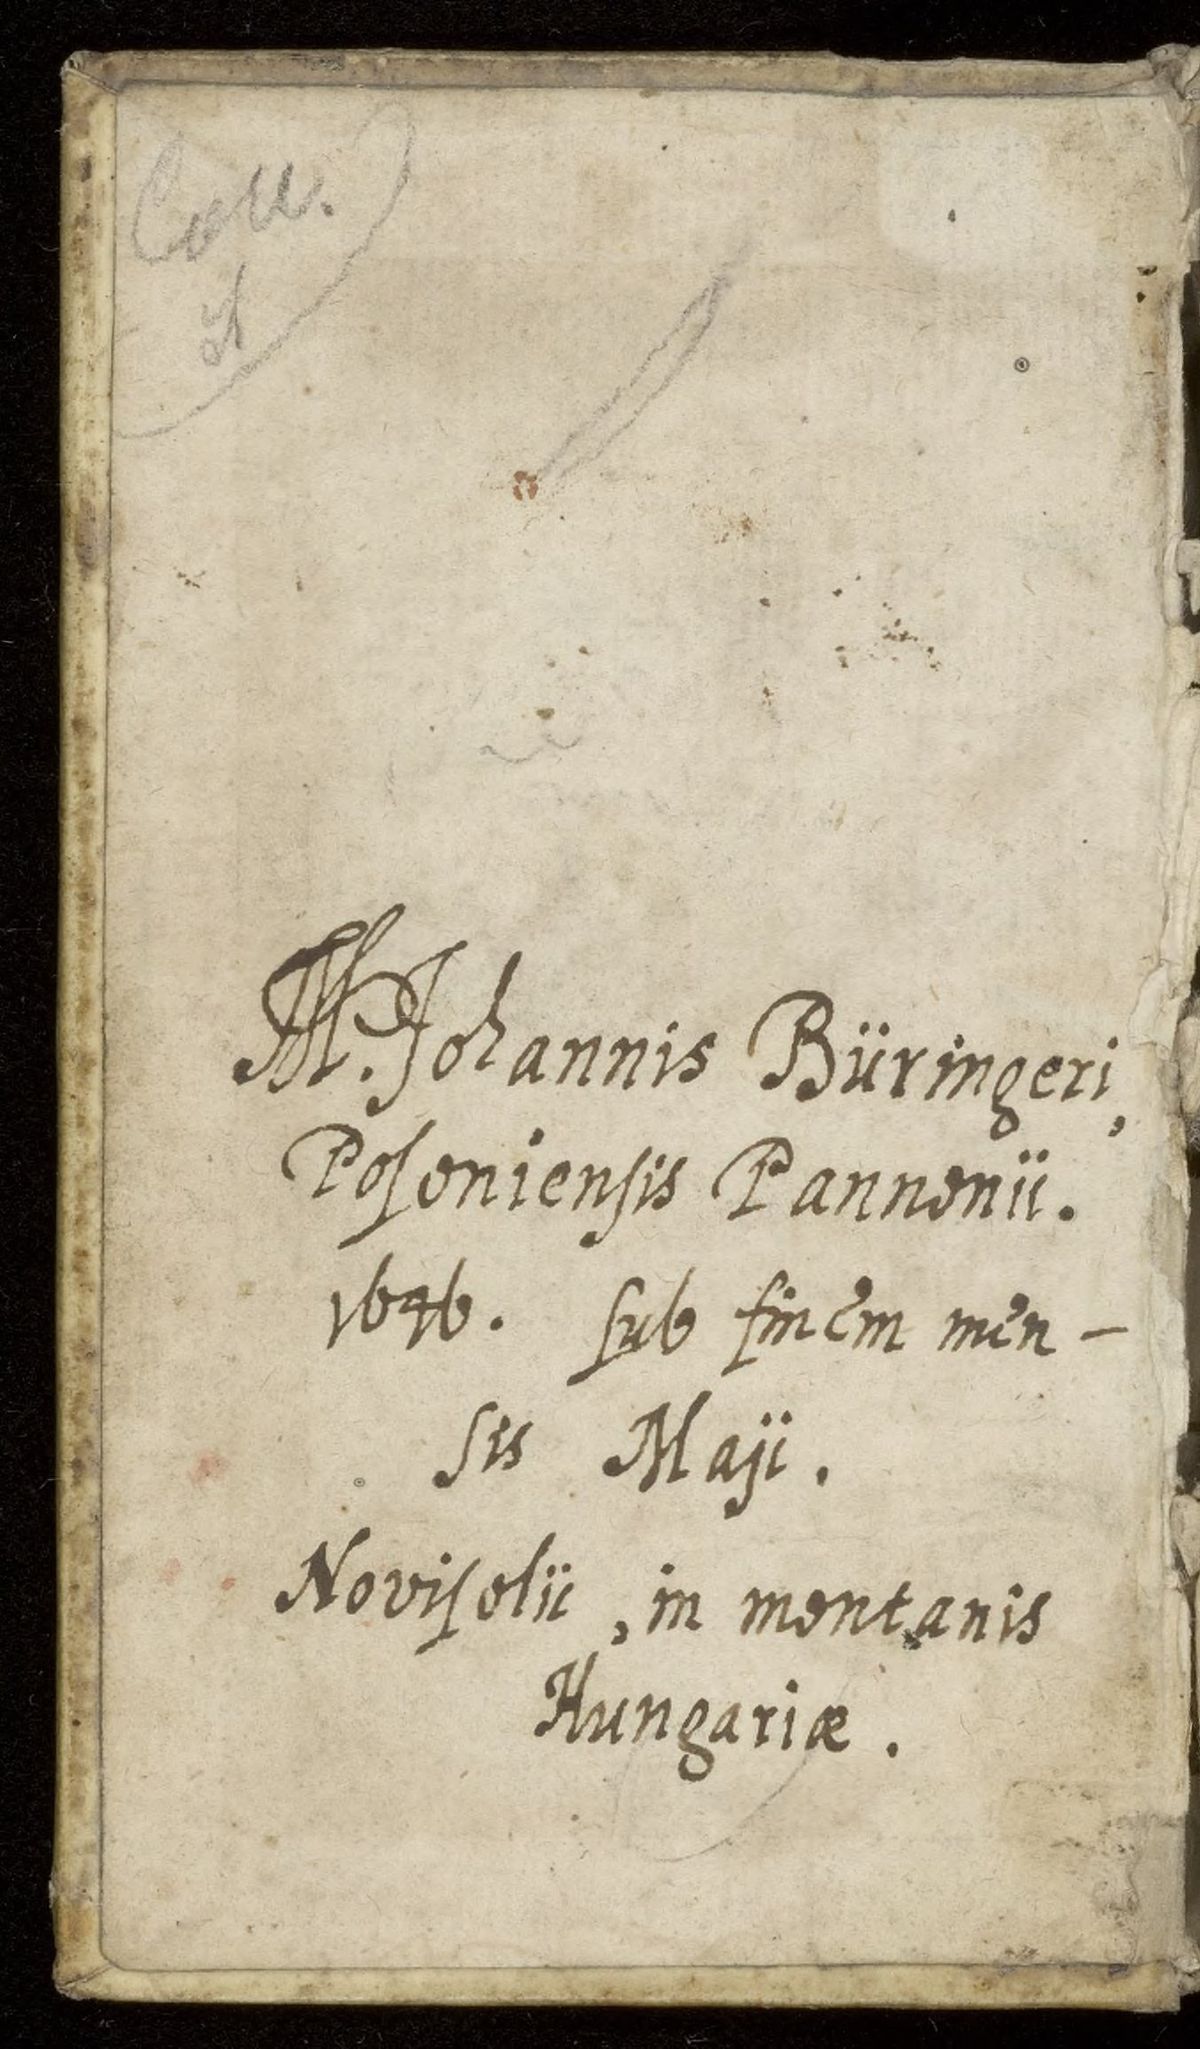 Coll.
M. Johannis Büringeri,
Poſonienſis Pannonii.
1646. ſub finem men-
ſis Maji.
Noviſolii, in montanis
Hungariæ.